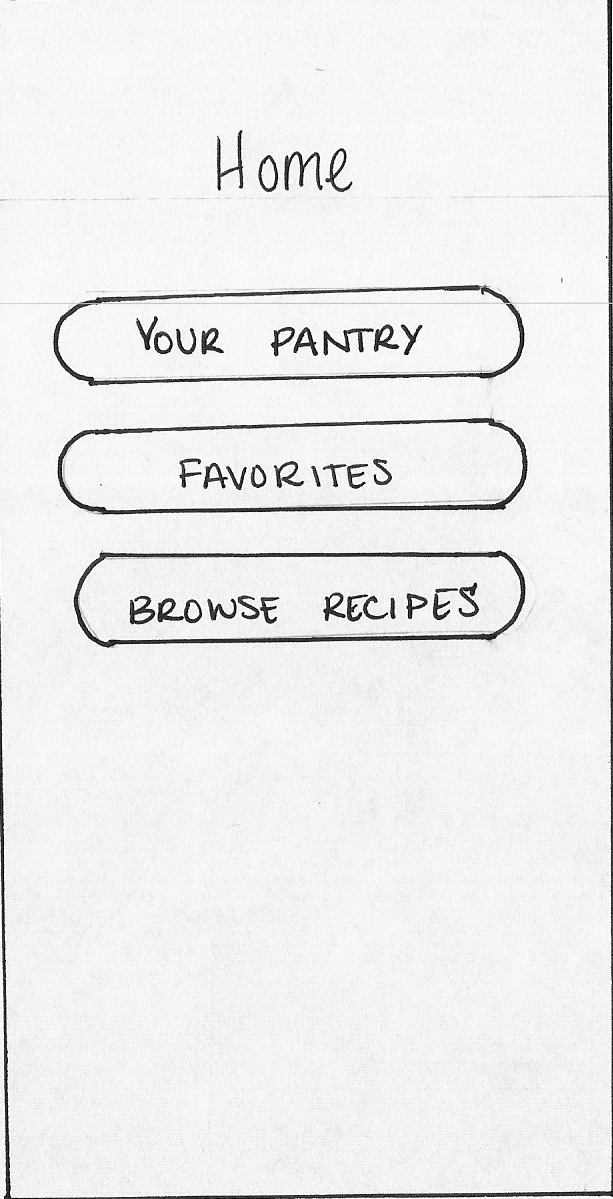 Home
YOUR PANTRY
FAVORITES
BROWSE RECIPES